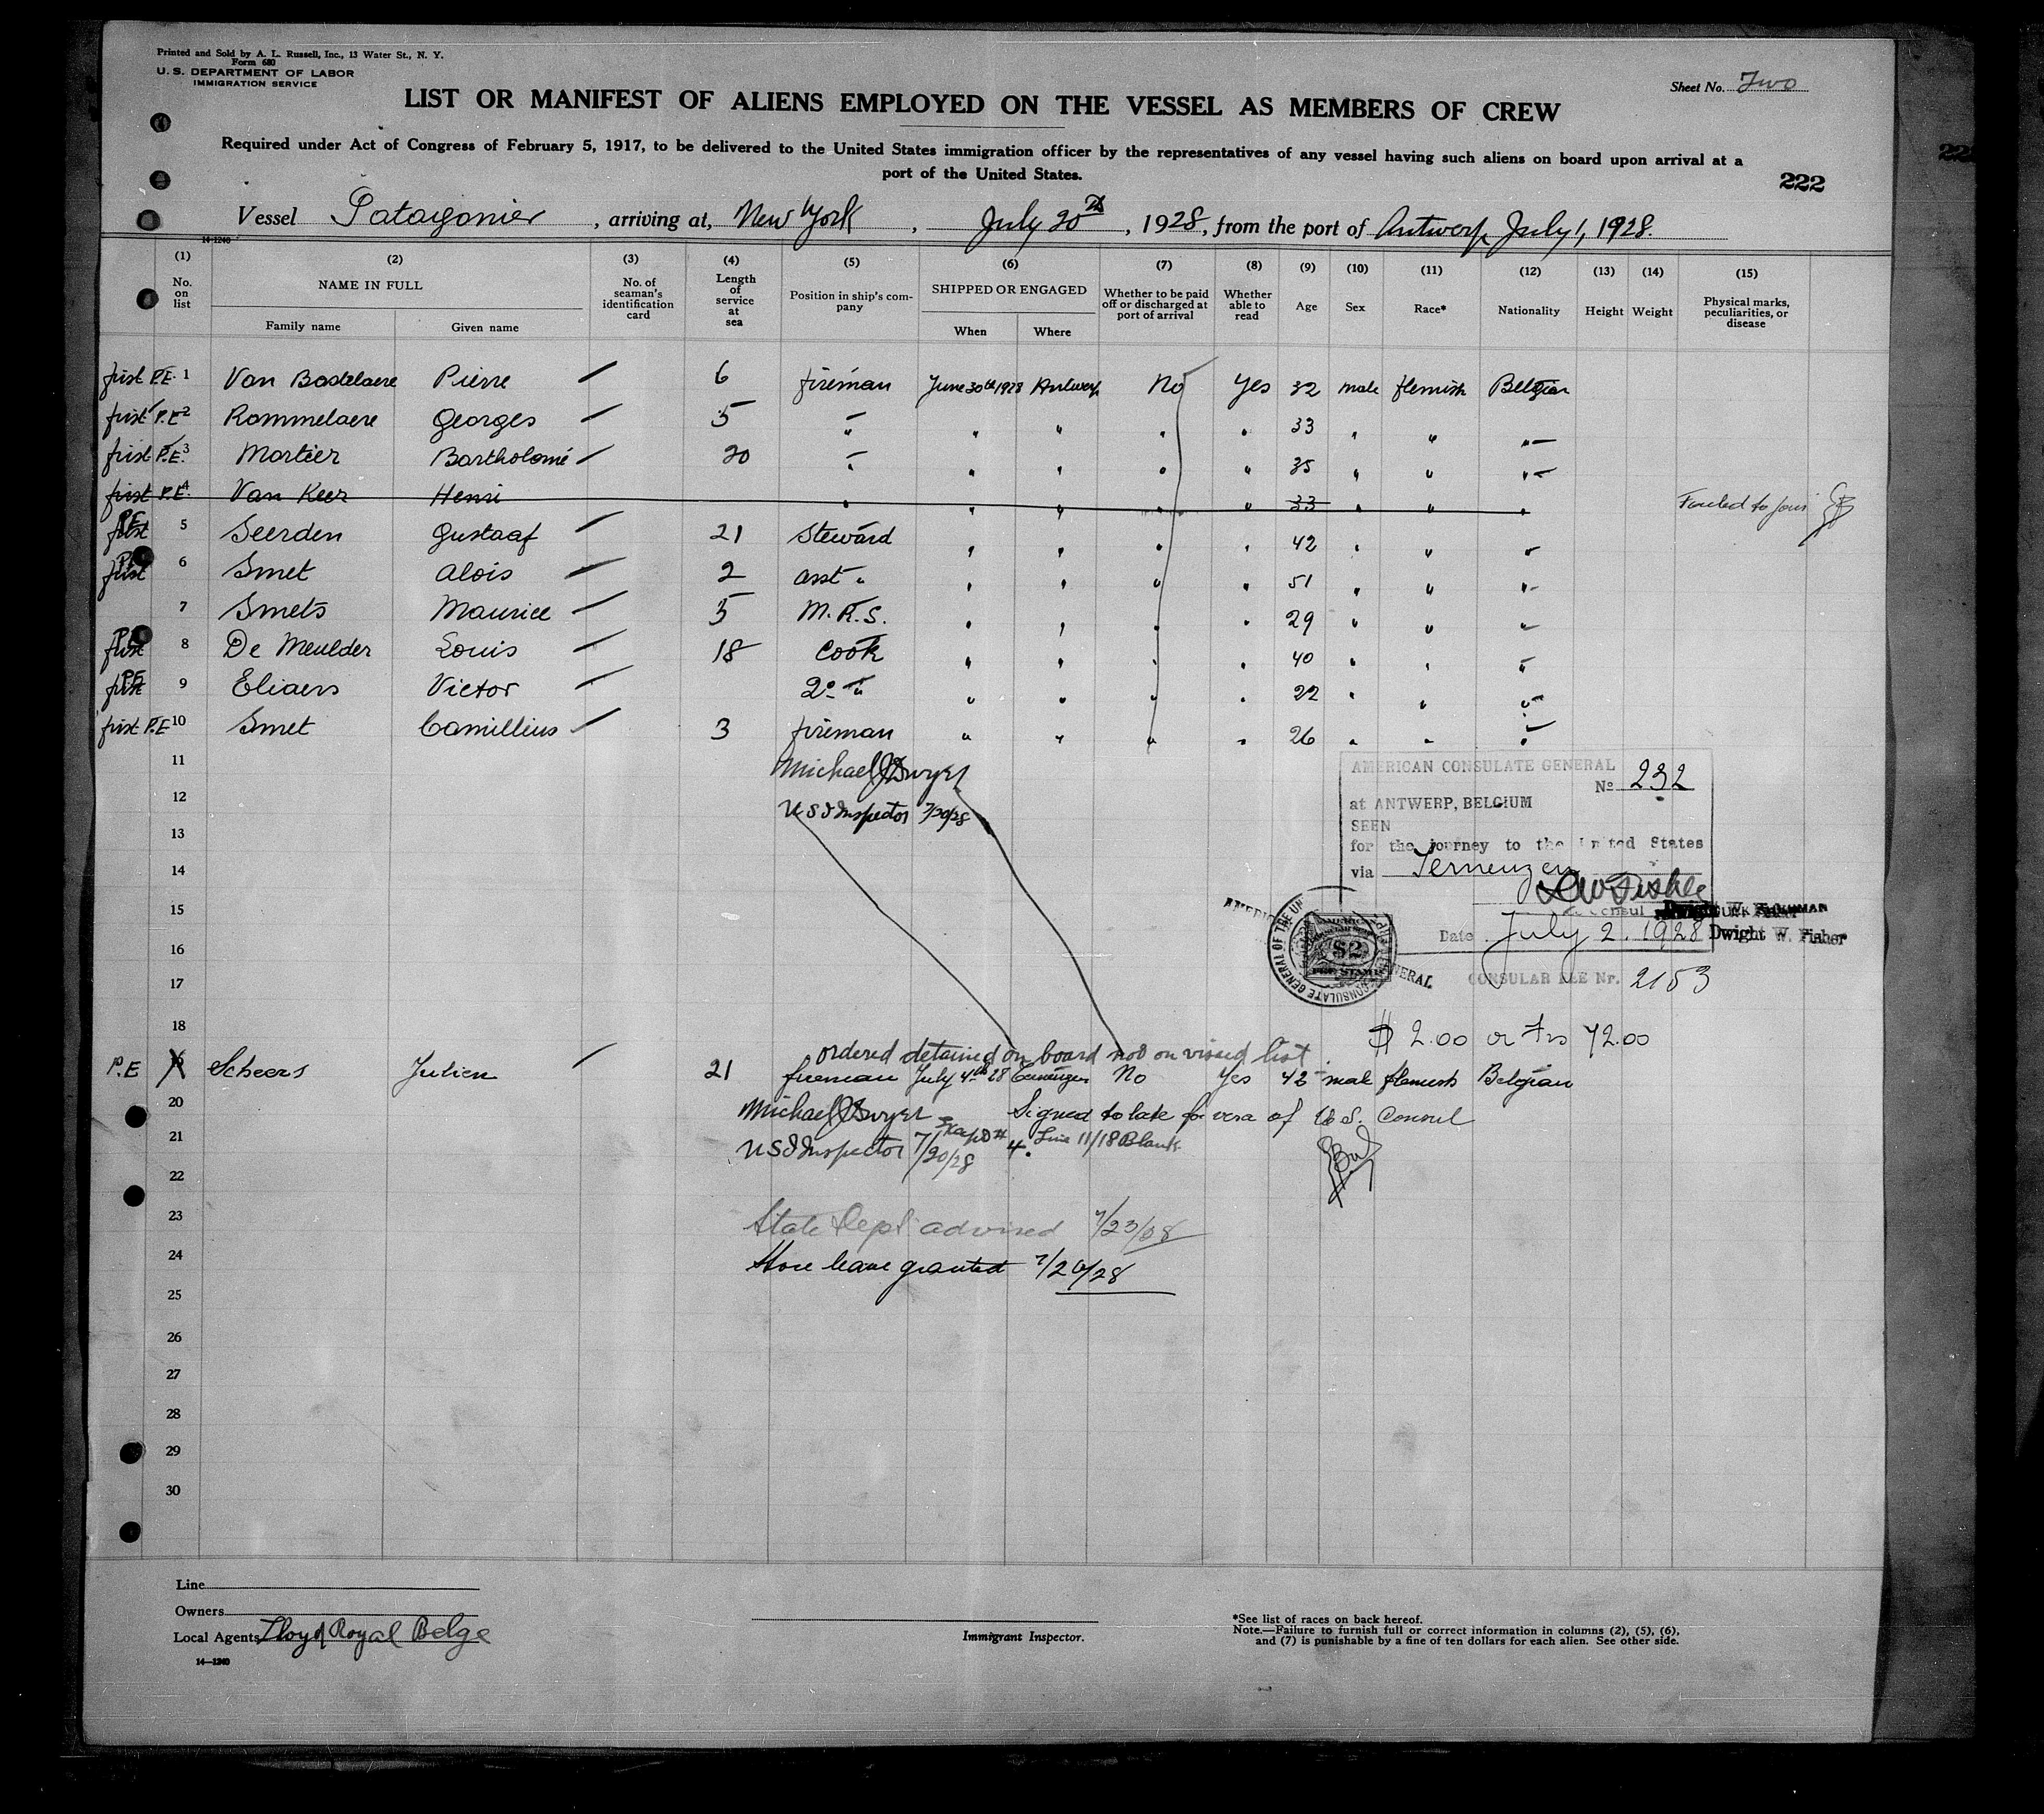 Printed and Sold by A. L. Russell, Inc., 13 Water St., N. Y.
Form 680
U. S. DEPARTMENT OF LABOR
IMMIGRATION SERVICE
Sheet No. Two
LIST OR MANIFEST OF ALIENS EMPLOYED ON THE VESSEL AS MEMBERS OF CREW
Required under Act of Congress of February 5, 1917, to be delivered to the United States immigration officer by the representatives of any vessel having such aliens on board upon arrival at a
port of the United States.
222
Vessel Patagonier, arriving at, New York, July 20th, 1928, from the port of Antwerp July 1, 1928.
14-1240
(1) (2) (3) (4) (5) (6) (7) (8) (9) (10) (11) (12) (13) (14) (15)
No. on list NAME IN FULL Family name Given name No. of seaman's identification card Length of service at sea Position in ship's company SHIPPED OR ENGAGED When Where Whether to be paid off or discharged at port of arrival Whether able to read Age Sex Race* Nationality Height Weight Physical marks, peculiarities, or disease
first P.E. 1 Van Bastelaere Pierre 6 fireman June 30th 1928 Antwerp No Yes 32 male flemish Belgian
first P.E 2 Rommelaere Georges 5 " " " " " 33 " " "
first P.E. 3 Mortier Bartholomé 20 " " " " " 35 " " "
first P.E. 4 Van Keer Henri " " " " " 33 " " " Failed to join
first P.E. 5 Seerden Gustaaf 21 Steward " " " " 42 " " "
first P.E. 6 Smet Alois 2 asst " " " " " 51 " " "
7 Smets Maurice 5 M.R.S. " " " " 29 " " "
first P.E. 8 De Meulder Louis 18 Cook " " " " 40 " " "
first P.E. 9 Eliaers Victor 2e " " " " " 22 " " "
first P.E 10 Smet Camillius 3 fireman " " " " 26 " " "
11 Michael J Dwyer
12 U S I Inspector 7/20/28
13
14
15
16
17
18
AMERICAN CONSULATE GENERAL
No 232
at ANTWERP, BELGIUM
SEEN
for the journey to the United States
via Terneuzen
Consul
Date July 2, 1928 Dwight W. Fisher
CONSULAR FEE Nr. 2153
$ 2.00 or Frs 72.00
ordered detained on board not on visaed list
P.E Scheers Julien 21 fireman July 4th 28 Terneuzen No Yes 42 male flemish Belgian
20 Michael J Dwyer Signed to late for visa of U.S. Consul
21 U S I Inspector 7/20/28 Except # 4. Line 11/18 Blank
22
23 State Dept advised 7/23/28
24 Shore leave granted 7/20/28
25
26
27
28
29
30
Line
Owners
Local Agents Lloyd Royal Belge
14—1240
Immigrant Inspector.
*See list of races on back hereof.
Note.—Failure to furnish full or correct information in columns (2), (5), (6),
and (7) is punishable by a fine of ten dollars for each alien. See other side.